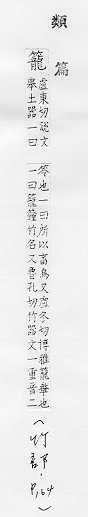 類
篇
籠
盧東切說文
舉土器一曰
笭也一曰所以畜鳥又盧冬切博雅籠䇠也
一曰籠䇠竹名又魯孔切竹器文一重音二
(竹部.P,64)